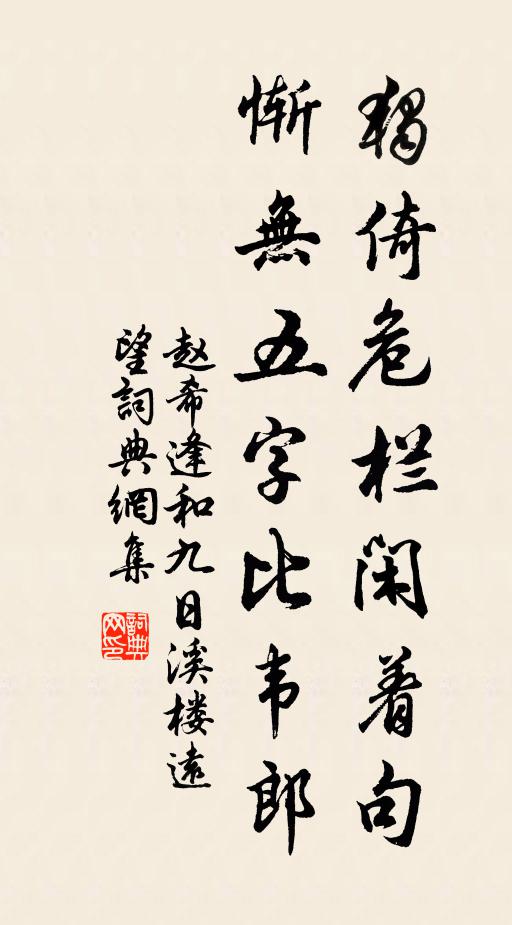 獨倚危栏閑着句
慚無五字比韦郎
赵希逢和九日溪楼遠
望詞典網集
詞典网印